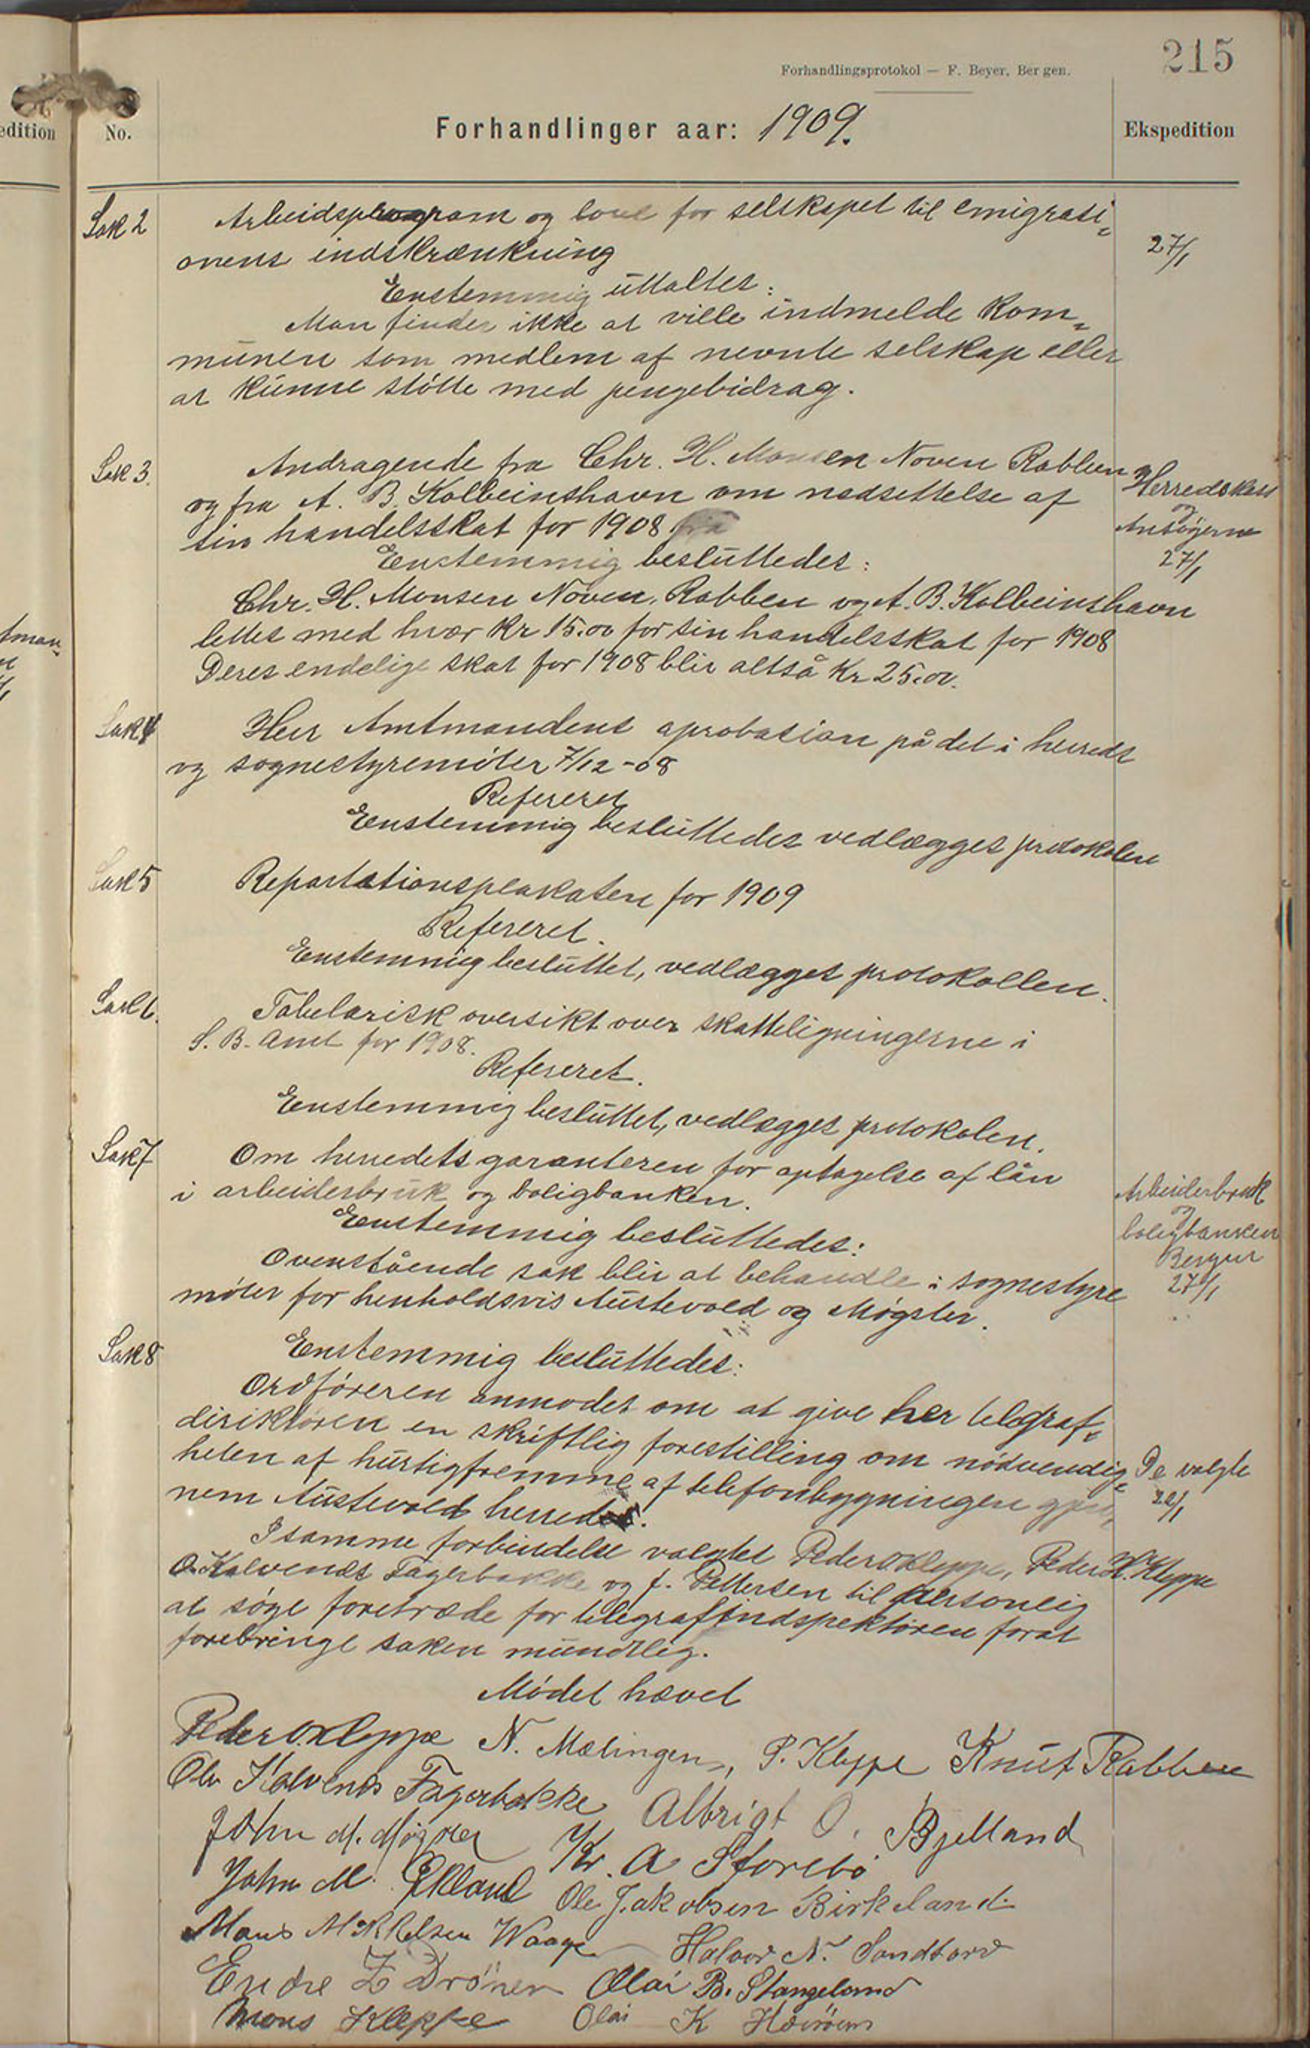 215
Forhandlingsprotokol — F. Beyer, Bergen.
edition
No.
Forhandlinger aar: 1909.
Ekspedition
Sak 2
Arbeidsprogram og love for selskapet til emigrasi-
onens indskrænkning
27/1
Enstemmig uttaltes:
Man finder ikke at ville indmelde kom-
munen som medlem af nevnte selskap eller
at kunne støtte med pengebidrag.
Sak 3.
Andragende fra Chr. H. Monsen Noven Rabben
og fra A. B. Kolbeinshavn om nedsettelse af
sin handelsskat for 1908
Herredskass
og
Ansøgerne
27/1
Enstemmig besluttedes:
Chr. H. Monsen Noven, Rabben og A. B. Kolbeinshavn
lettes med hvær kr 15.00 for sin handelsskat for 1908
Deres endelige skat for 1908 blir altså Kr 25.00.
Sak 4
Herr Amtmandens aprobasion på det i herreds
og sognestyremøter 7/12-08
Refereret
Enstemmig besluttedes vedlægges protokolen
Sak 5
Repartationsplakaten for 1909
Refereret.
Enstemmig besluttet, vedlægges protokollen.
Sak 6.
Tabelarisk oversikt over skatteligningerne i
S. B. Amt for 1908.
Refereret.
Enstemmig besluttet, vedlægges protokolen.
Sak 7
Om herredets garanteren for optagelse af lån
i arbeiderbruk og boligbanken.
Arbeiderbruk
og
boligbanken
Bergen
27/1
Enstemmig besluttedes:
Ovenstående sak blir at behandle i sognestyre
møter for henholdsvis Austevold og Møgster.
Sak 8
Enstemmig besluttedes:
Ordføreren anmodet om at give her telegraf-
diriktøren en skriftlig forestilling om nødvendig-
heten af hurtigfremme af telefonbygningen gjen-
nem Austevold herred.
De valgte
22/1
I samme forbindelse valgtes Peder O Kleppe, Peder H. Kleppe
O. Kalvenes Fagerbakke og J. Pettersen til personlig
at søge foretræde for telegrafindspektøren forat
forebringe saken mundtlig.
Mødet hævet
Peder O. Kleppe N. Mælingen, P. Kleppe Knut Rabben
Ole Kalvenes Fagerbakke Albrigt O. Bjelland
John M. Møgster Kr. A Storebø
John M. Ekland Ole Jakobsen Birkeland
Mons Mikkelsen Waage Halvor N. Sandtorv
Endre Z Drönen Olai B. Stangeland
Mons Kleppe Olai K